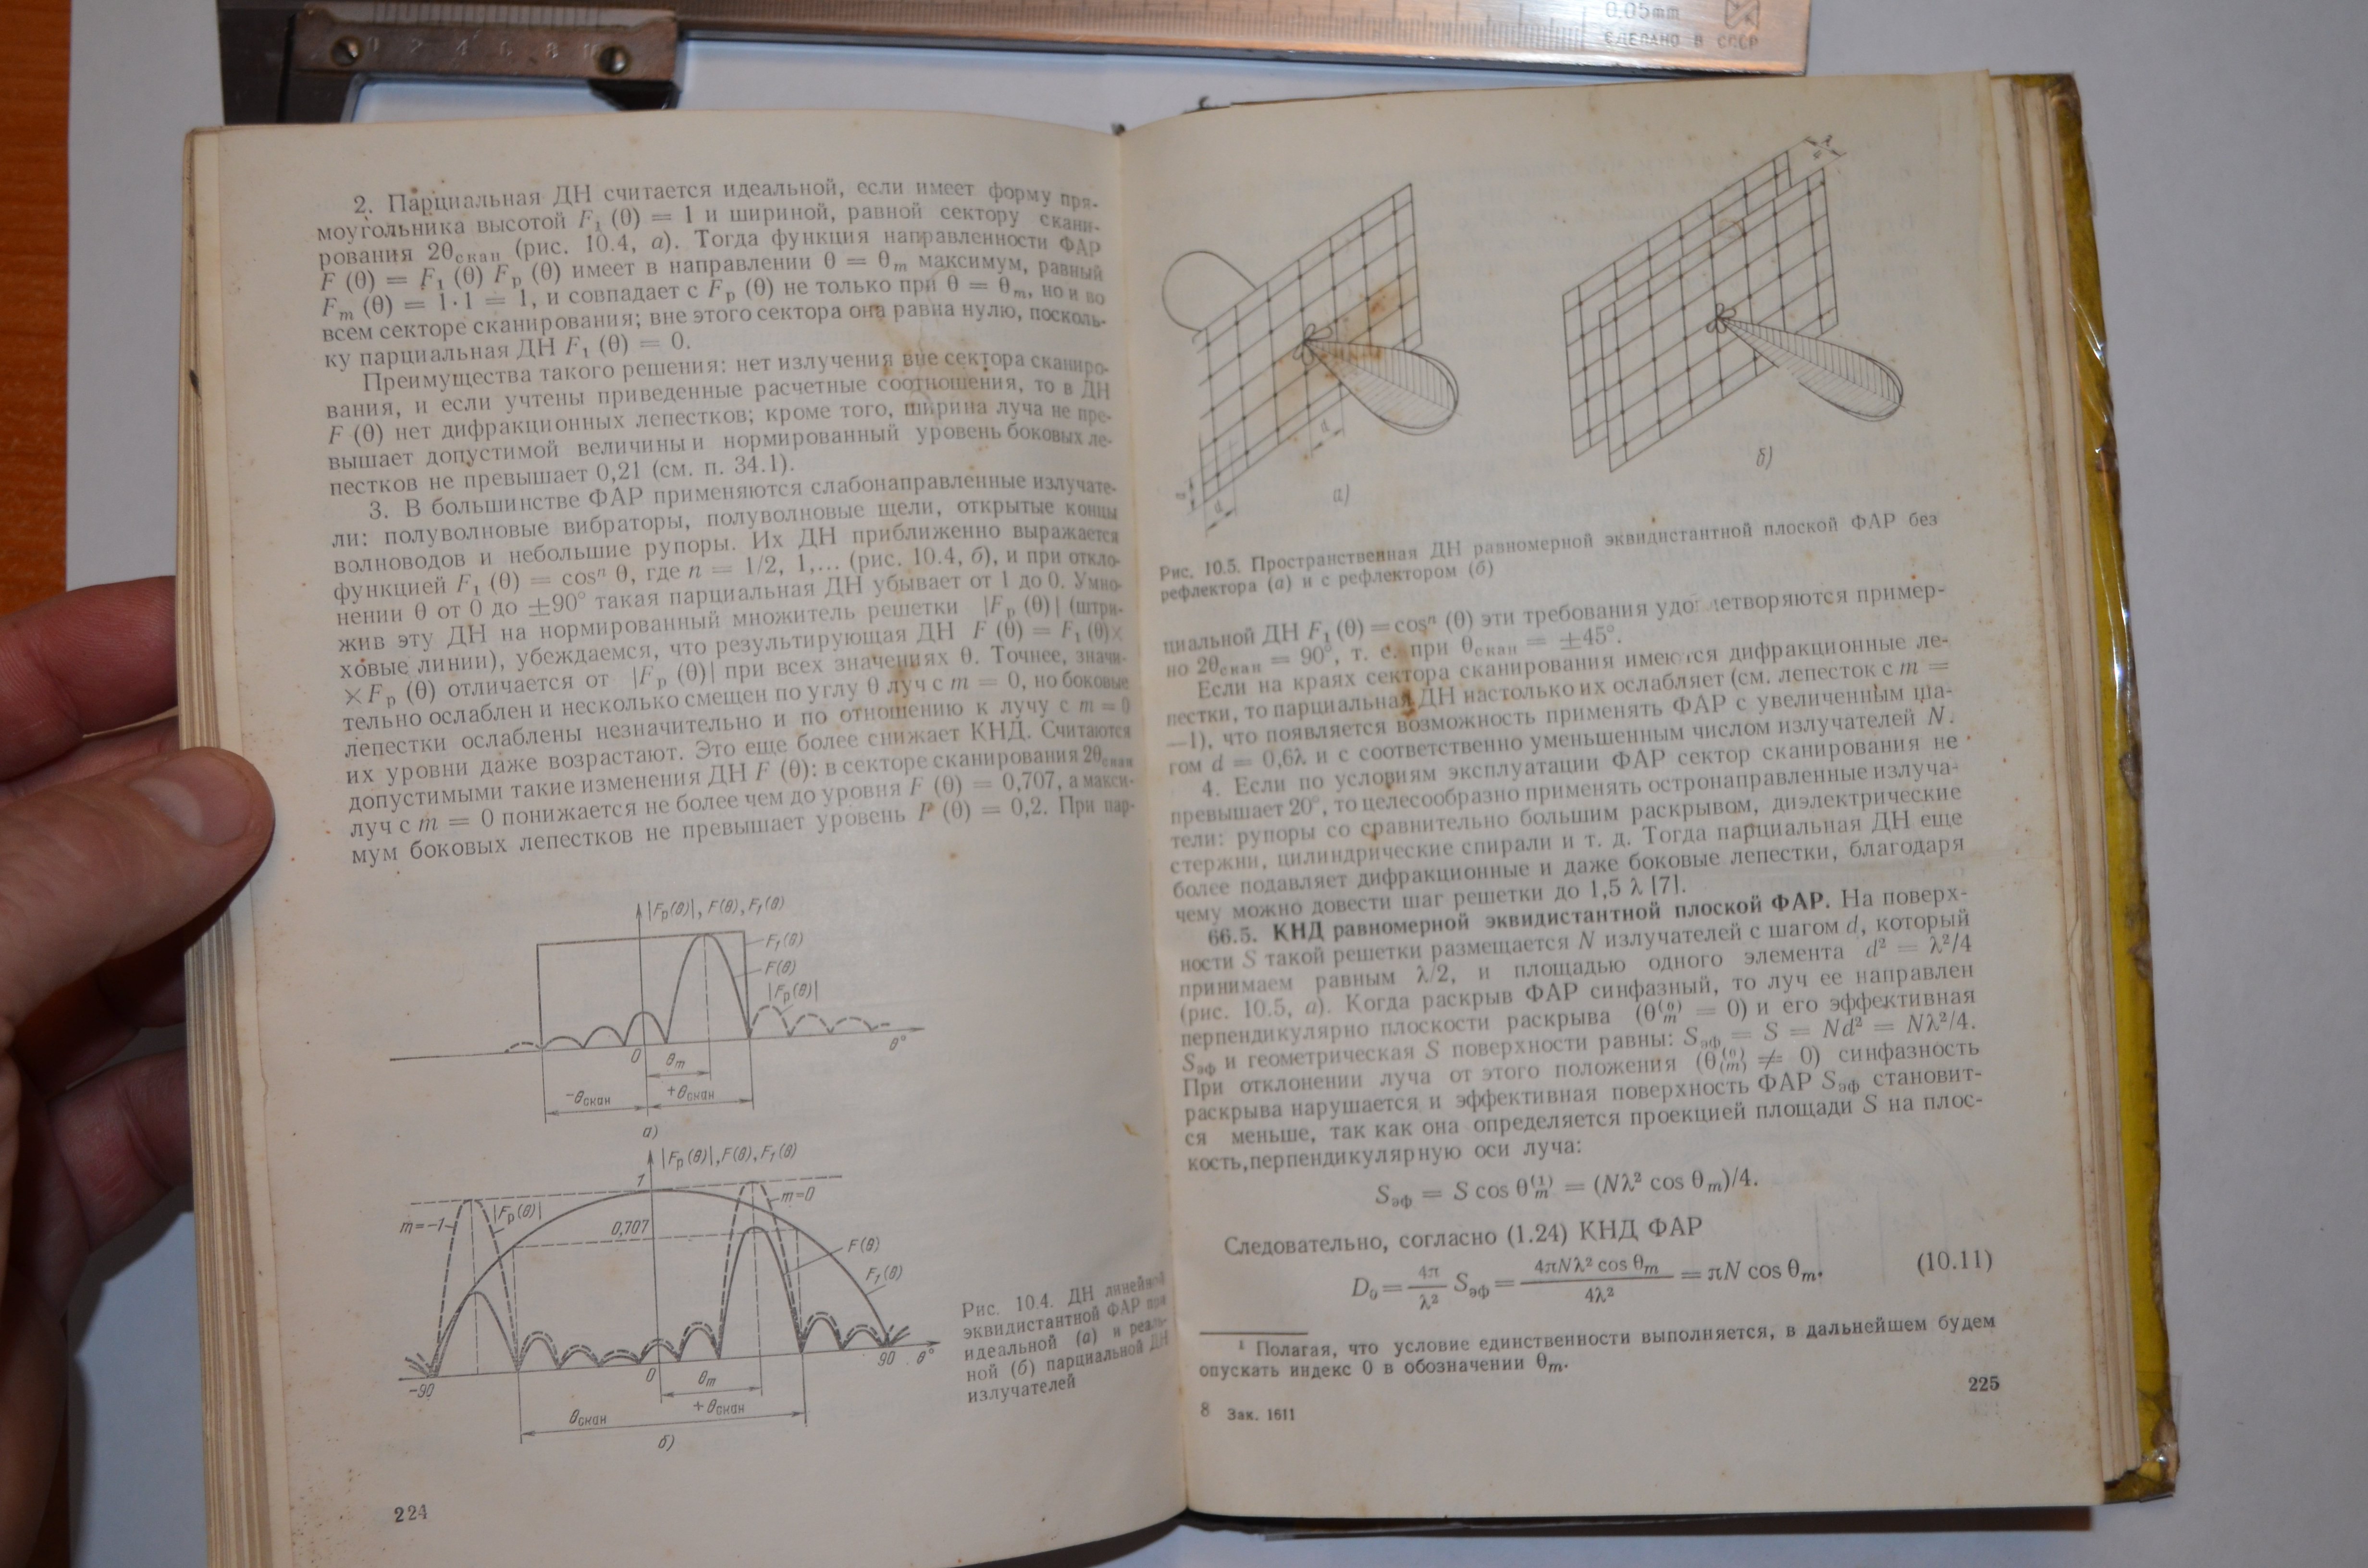 0 2 4 6 8 10
0.05mm
СДЕЛАНО В СССР
2. Парциальная ДН считается идеальной, если имеет форму пря-
моугольника высотой F₁ (θ) = 1 и шириной, равной сектору скани-
рования 2θскан (рис. 10.4, а). Тогда функция направленности ФАР
F (θ) = F₁ (θ) Fр (θ) имеет в направлении θ = θm максимум, равный
Fm (θ) = 1·1 = 1, и совпадает с Fр (θ) не только при θ = θm, но и во
всем секторе сканирования; вне этого сектора она равна нулю, посколь-
ку парциальная ДН F₁ (θ) = 0.
Преимущества такого решения: нет излучения вне сектора сканиро-
вания, и если учтены приведенные расчетные соотношения, то в ДН
F (θ) нет дифракционных лепестков; кроме того, ширина луча не пре-
вышает допустимой величины и нормированный уровень боковых ле-
пестков не превышает 0,21 (см. п. 34.1).
3. В большинстве ФАР применяются слабонаправленные излучате-
ли: полуволновые вибраторы, полуволновые щели, открытые концы
волноводов и небольшие рупоры. Их ДН приближенно выражается
функцией F₁ (θ) = cosⁿ θ, где n = 1/2, 1,... (рис. 10.4, б), и при откло-
нении θ от 0 до ±90° такая парциальная ДН убывает от 1 до 0. Умно-
жив эту ДН на нормированный множитель решетки |Fр (θ)| (штри-
ховые линии), убеждаемся, что результирующая ДН F (θ) = F₁ (θ)×
×Fр (θ) отличается от |Fр (θ)| при всех значениях θ. Точнее, значи-
тельно ослаблен и несколько смещен по углу θ луч с m = 0, но боковые
лепестки ослаблены незначительно и по отношению к лучу с m = 0
их уровни даже возрастают. Это еще более снижает КНД. Считаются
допустимыми такие изменения ДН F (θ): в секторе сканирования 2θскан
луч с m = 0 понижается не более чем до уровня F (θ) = 0,707, а макси-
мум боковых лепестков не превышает уровень F (θ) = 0,2. При пар-
|Fр(θ)|, F(θ), F₁(θ)
F₁(θ)
F(θ)
|Fр(θ)|
0
θm
θ°
-θскан
+θскан
а)
|Fр(θ)|, F(θ), F₁(θ)
1
m=0
m=-1
|Fр(θ)|
0,707
F(θ)
F₁(θ)
-90
0
θm
90
θ°
+θскан
θскан
б)
Рис. 10.4. ДН линейной
эквидистантной ФАР при
идеальной (а) и реаль-
ной (б) парциальной ДН
излучателей
224
λ
d
d
а)
б)
Рис. 10.5. Пространственная ДН равномерной эквидистантной плоской ФАР без
рефлектора (а) и с рефлектором (б)
циальной ДН F₁ (θ) = cosⁿ (θ) эти требования удовлетворяются пример-
но 2θскан = 90°, т. е. при θскан = ±45°.
Если на краях сектора сканирования имеются дифракционные ле-
пестки, то парциальная ДН настолько их ослабляет (см. лепесток с m =
—1), что появляется возможность применять ФАР с увеличенным ша-
гом d = 0,6λ и с соответственно уменьшенным числом излучателей N.
4. Если по условиям эксплуатации ФАР сектор сканирования не
превышает 20°, то целесообразно применять остронаправленные излуча-
тели: рупоры со сравнительно большим раскрывом, диэлектрические
стержни, цилиндрические спирали и т. д. Тогда парциальная ДН еще
более подавляет дифракционные и даже боковые лепестки, благодаря
чему можно довести шаг решетки до 1,5 λ [7].
66.5. КНД равномерной эквидистантной плоской ФАР. На поверх-
ности S такой решетки размещается N излучателей с шагом d, который
принимаем равным λ/2, и площадью одного элемента d² = λ²/4
(рис. 10.5, а). Когда раскрыв ФАР синфазный, то луч ее направлен
перпендикулярно плоскости раскрыва (θm⁽⁰⁾ = 0) и его эффективная
Sэф и геометрическая S поверхности равны: Sэф = S = Nd² = Nλ²/4.
При отклонении луча от этого положения (θ(m)⁽⁰⁾ ≠ 0) синфазность
раскрыва нарушается и эффективная поверхность ФАР Sэф становит-
ся меньше, так как она определяется проекцией площади S на плос-
кость, перпендикулярную оси луча:
Sэф = S cos θm⁽¹⁾ = (Nλ² cos θm)/4.
Следовательно, согласно (1.24) КНД ФАР
D₀ = 4π/λ² Sэф = 4πNλ² cos θm / 4λ² = πN cos θm. (10.11)
¹ Полагая, что условие единственности выполняется, в дальнейшем будем
опускать индекс 0 в обозначении θm.
225
8 Зак. 1611